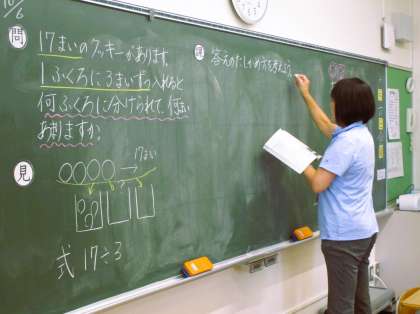 10/6
問
17まいのクッキーがあります。
1ふくろに3まいずつ入れると
何ふくろに分けられて、何まい
あまりますか。
見
17まい
式 17÷3
課
答えのたしかめ方を考えよう。